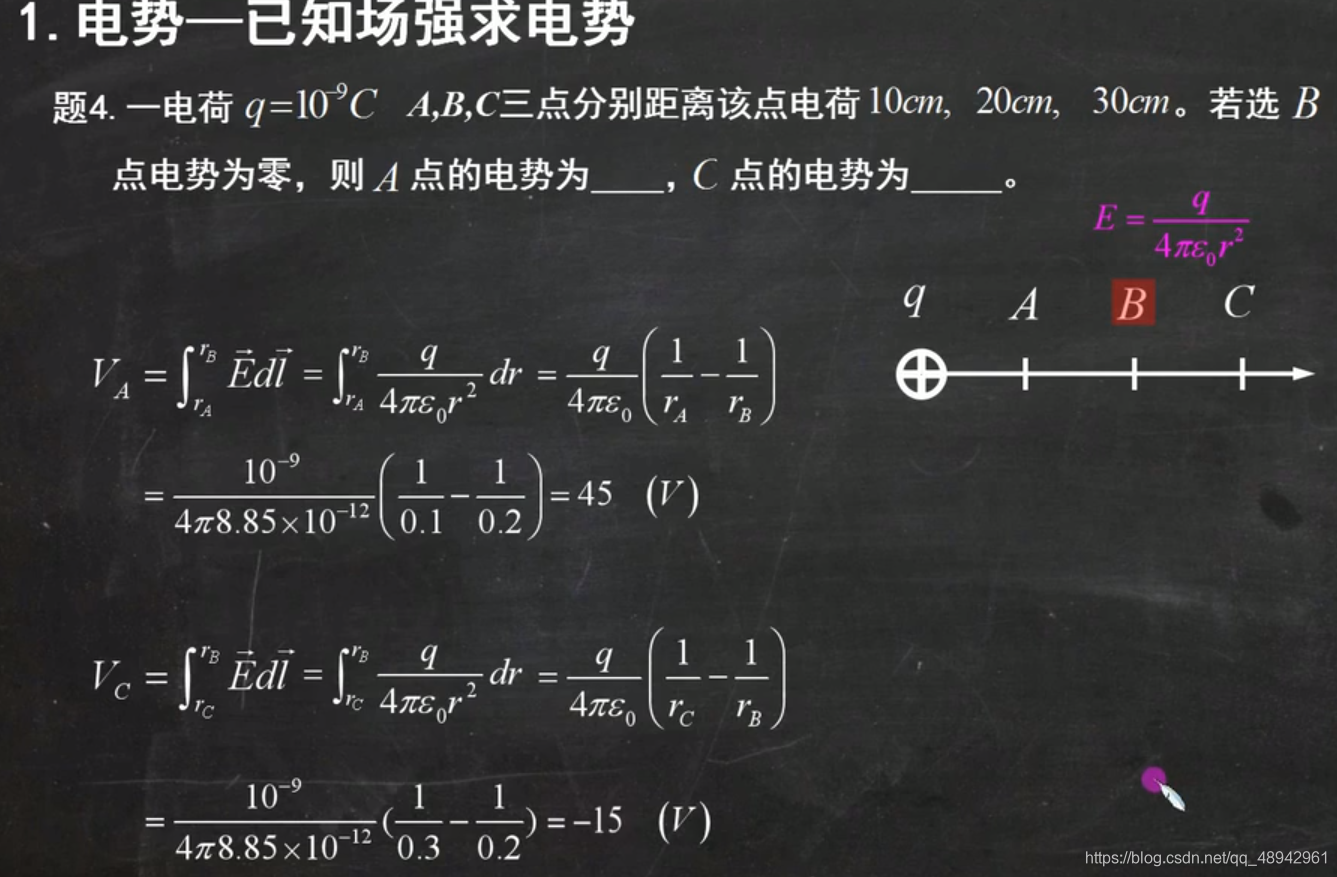 1. 电势—已知场强求电势
题4. 一电荷 q=10⁻⁹C A,B,C三点分别距离该点电荷10cm, 20cm, 30cm。若选 B
点电势为零，则 A 点的电势为____，C 点的电势为_____。
E = q/(4πε₀r²)
q A B C
V_A = ∫_{r_A}^{r_B} E⃗dl⃗ = ∫_{r_A}^{r_B} q/(4πε₀r²) dr = q/(4πε₀) (1/r_A − 1/r_B)
= 10⁻⁹/(4π8.85×10⁻¹²) (1/0.1 − 1/0.2) = 45 (V)
V_C = ∫_{r_C}^{r_B} E⃗dl⃗ = ∫_{r_C}^{r_B} q/(4πε₀r²) dr = q/(4πε₀) (1/r_C − 1/r_B)
= 10⁻⁹/(4π8.85×10⁻¹²) (1/0.3 − 1/0.2) = −15 (V)
https://blog.csdn.net/qq_48942961